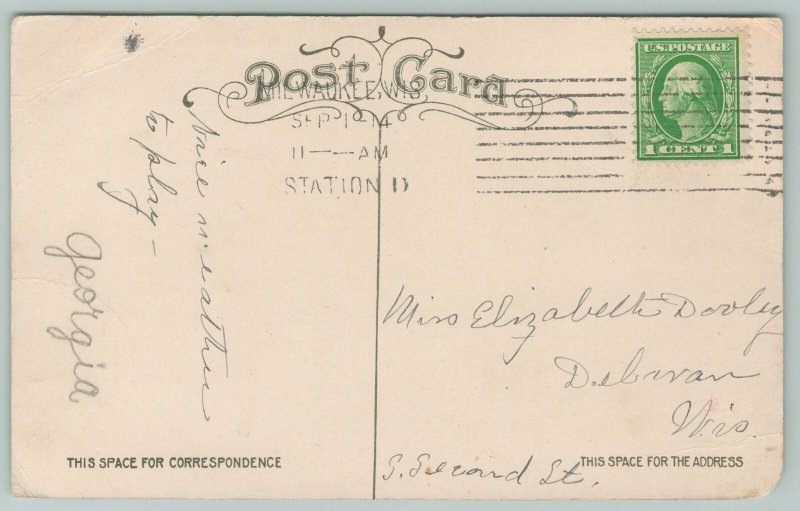 Post Card
MILWAUKEE, WIS.
SEP 1 14
11 — AM
STATION D
U.S. POSTAGE
1 CENT 1
Nice weather
to play —
Georgia
Miss Elizabeth Dooley
Delavan
Wis.
S. Second St.
THIS SPACE FOR CORRESPONDENCE
THIS SPACE FOR THE ADDRESS